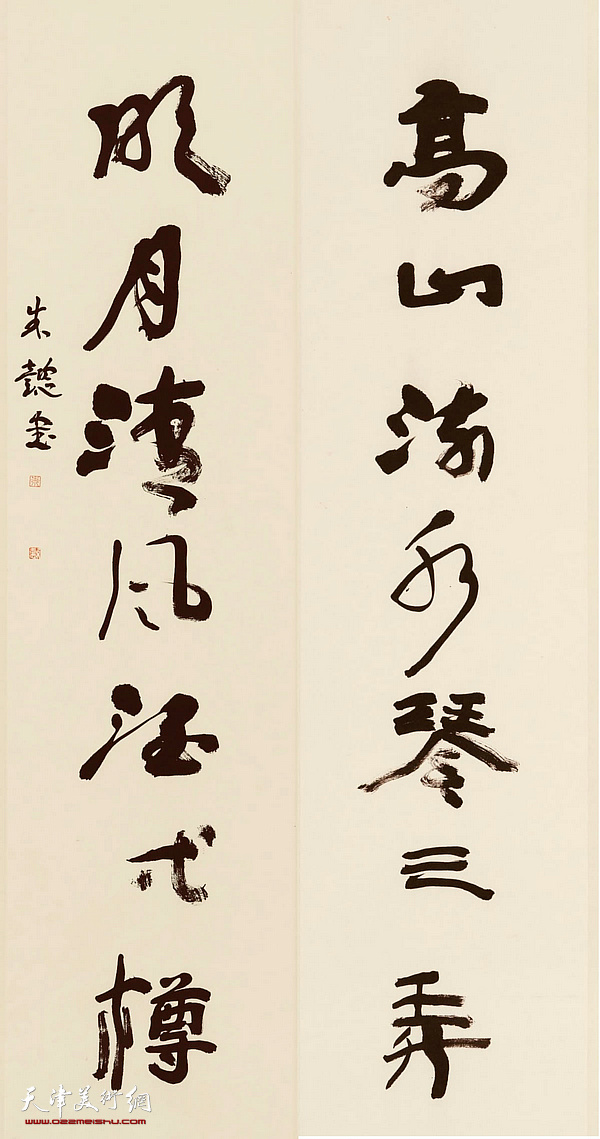 高山流水琴三弄
明月清风酒弌樽
朱懿書
天津美術網
www.022meishu.com